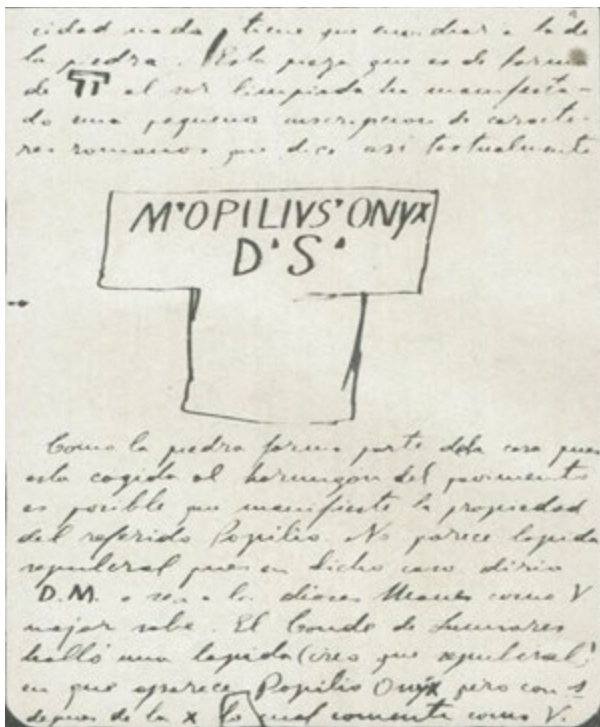 cidad nada tiene que envidiar a la de
la piedra. Esta pieza que es de forma
de T al ser limpiada ha manifesta-
do una pequeña inscripcion de caracte-
res romanos que dice asi textualmente
M'OPILIVS'ONYX
D'S'
Como la piedra forma parte de la casa pues
esta cogida al hormigon del pavimento
es posible que manifieste la propiedad
del referido Popilio. No parece lapida
sepulcral pues en dicho caso diria
D.M. o sea a los dioses Manes como V
mejor sabe. El Conde de Lumiares
halló una lapida (creo que sepulcral)
en que aparece Popilio Onyx pero con s
depues de la x lo cual comenta como V